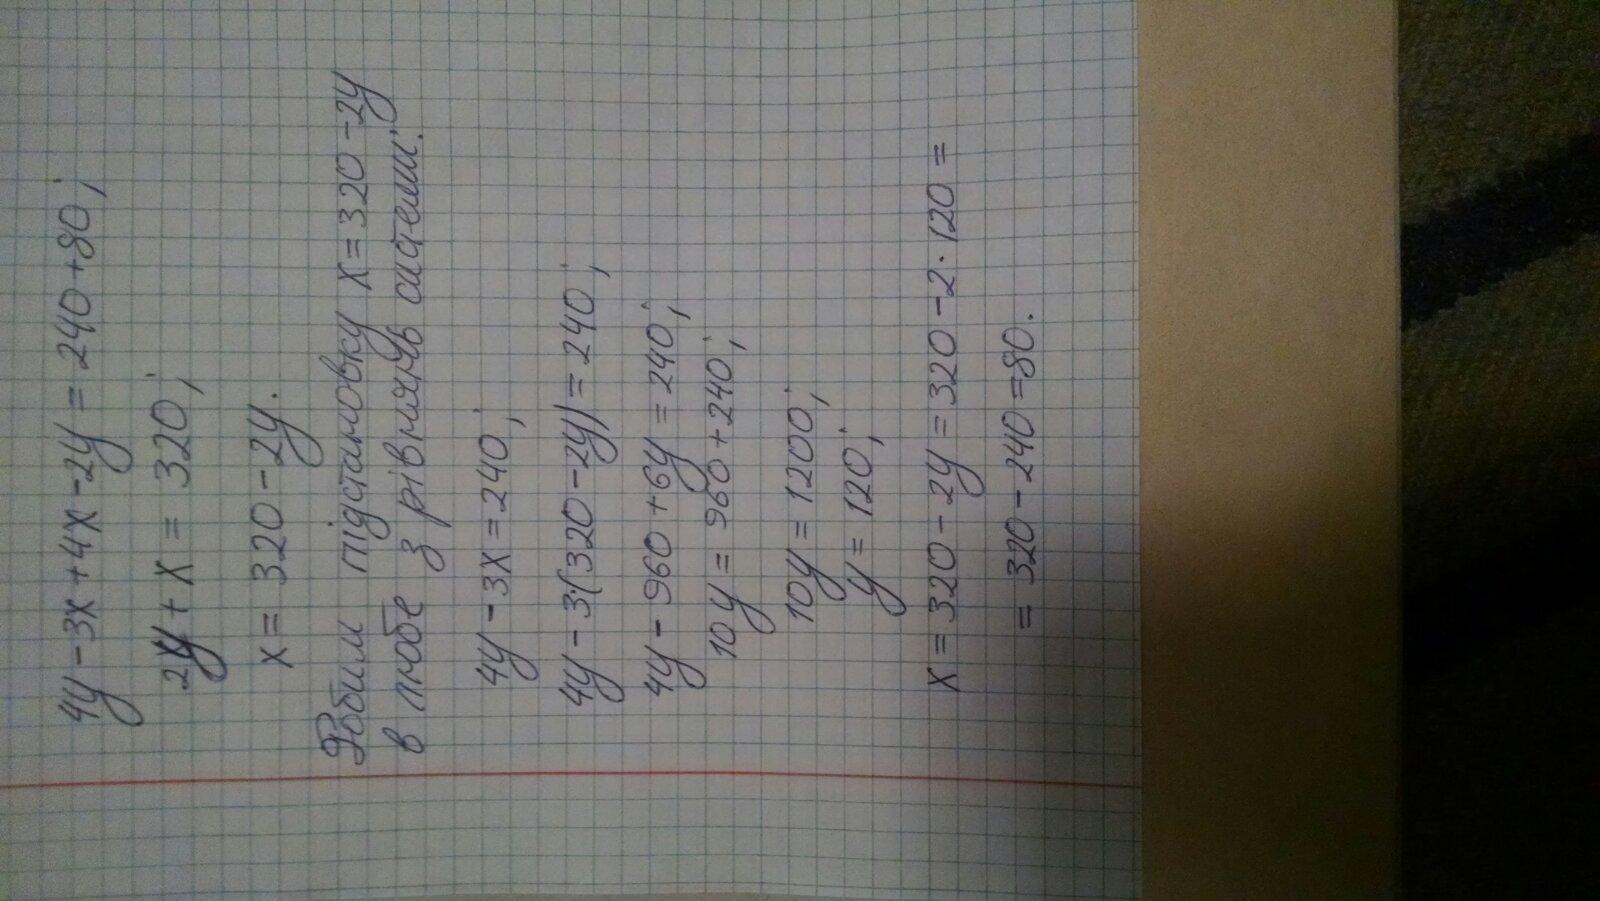 4y - 3x + 4x - 2y = 240 + 80;
2y + x = 320;
x = 320 - 2y.
Робим підстановку x = 320 - 2y
в любе з рівнянь системи.
4y - 3x = 240;
4y - 3(320 - 2y) = 240;
4y - 960 + 6y = 240;
10y = 960 + 240;
10y = 1200;
y = 120;
x = 320 - 2y = 320 - 2 · 120 =
= 320 - 240 = 80.